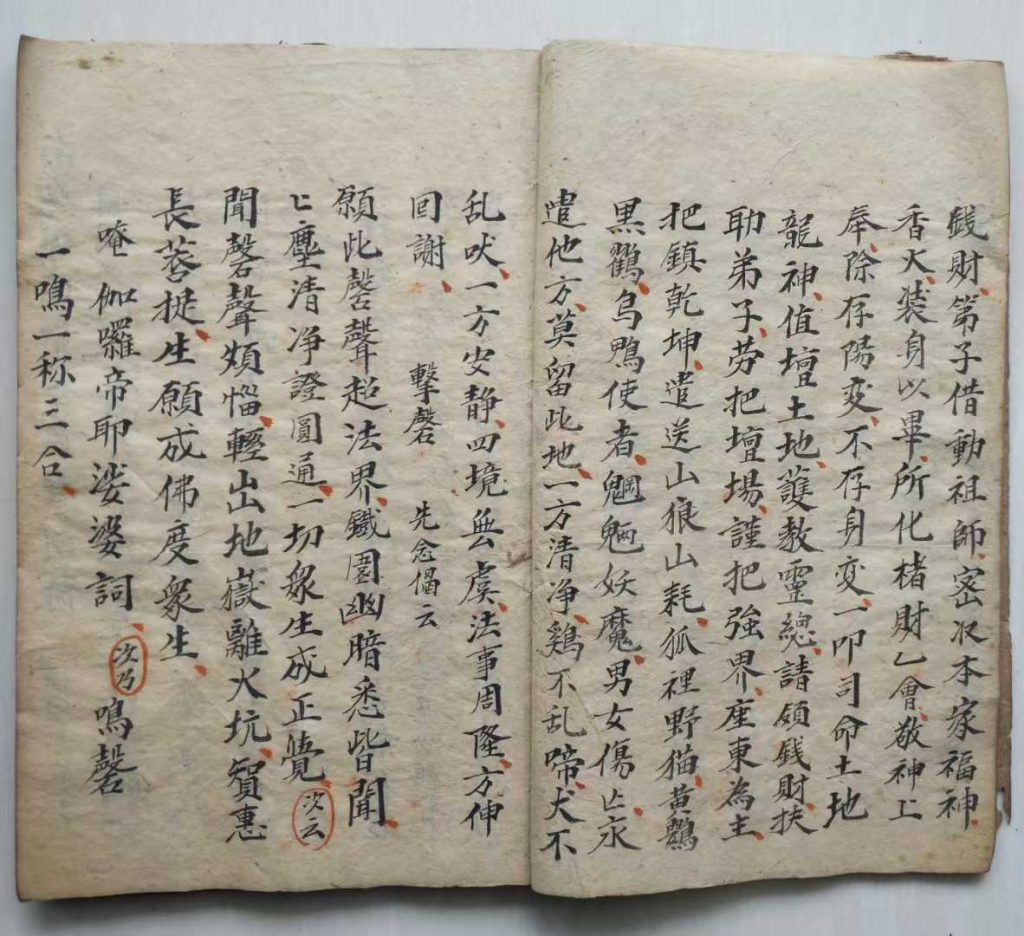 錢財、第子借動祖師、宻汉本家福神、
香火、装身以畢、所化楮財乙會、敬神上
奉、除存陽变、不存身变、一叩司命土地
龍神、值壇土地、護教靈總、請領钱財扶
助弟子、劳把壇場、謹把強界、座東為主、
把鎮乾坤、遣送山狼山耗、狐裡野猫、黄鷄
黑鸛、烏鴨使者、魍魎妖魔、男女傷亡、永
遣他方、莫留此地、一方清净、鷄不乱啼、犬不
乱吠、一方安静、四境無虞、法事周隆、方伸
回謝、 擊磬 先念偈云
願此磬聲超法界、鐵圍幽暗悉皆聞、
亡塵清净證圓通、一切衆生成正覺、次云
聞磬聲煩惱、輕出地嶽離火坑、智惠
長菩提、生願成佛度衆生、
唵 伽囉帝耶娑婆訶、次乃 鳴磬
一鳴一称三合、